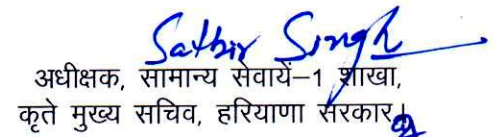 Satbir Singh
अधीक्षक, सामान्य सेवायें–1 शाखा,
कृते मुख्य सचिव, हरियाणा सरकार।